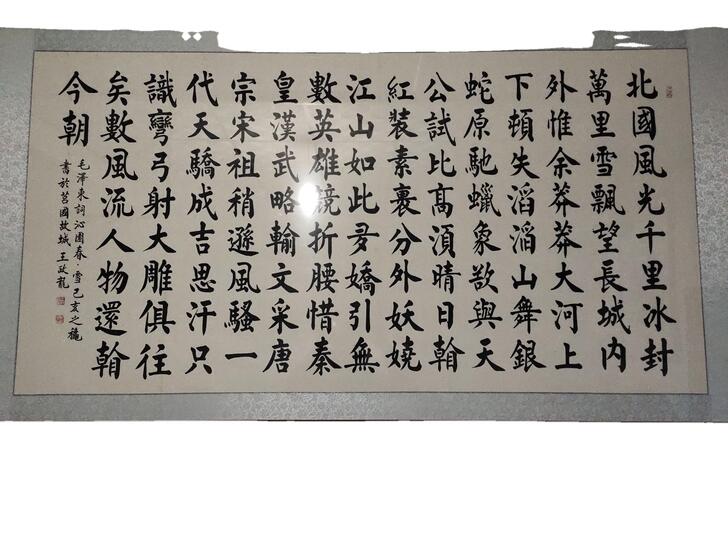 北國風光千里冰封
萬里雪飄望長城内
外惟余莽莽大河上
下頓失滔滔山舞銀
蛇原馳蠟象欲與天
公試比高湏晴日看
紅裝素裹分外妖嬈
江山如此多嬌引無
數英雄競折腰惜秦
皇漢武略輸文采唐
宗宋祖稍遜風騷一
代天驕成吉思汗只
識彎弓射大雕俱往
矣數風流人物還看
今朝
毛澤東詞沁園春·雪己亥之穐
書於莒國故城王政龍